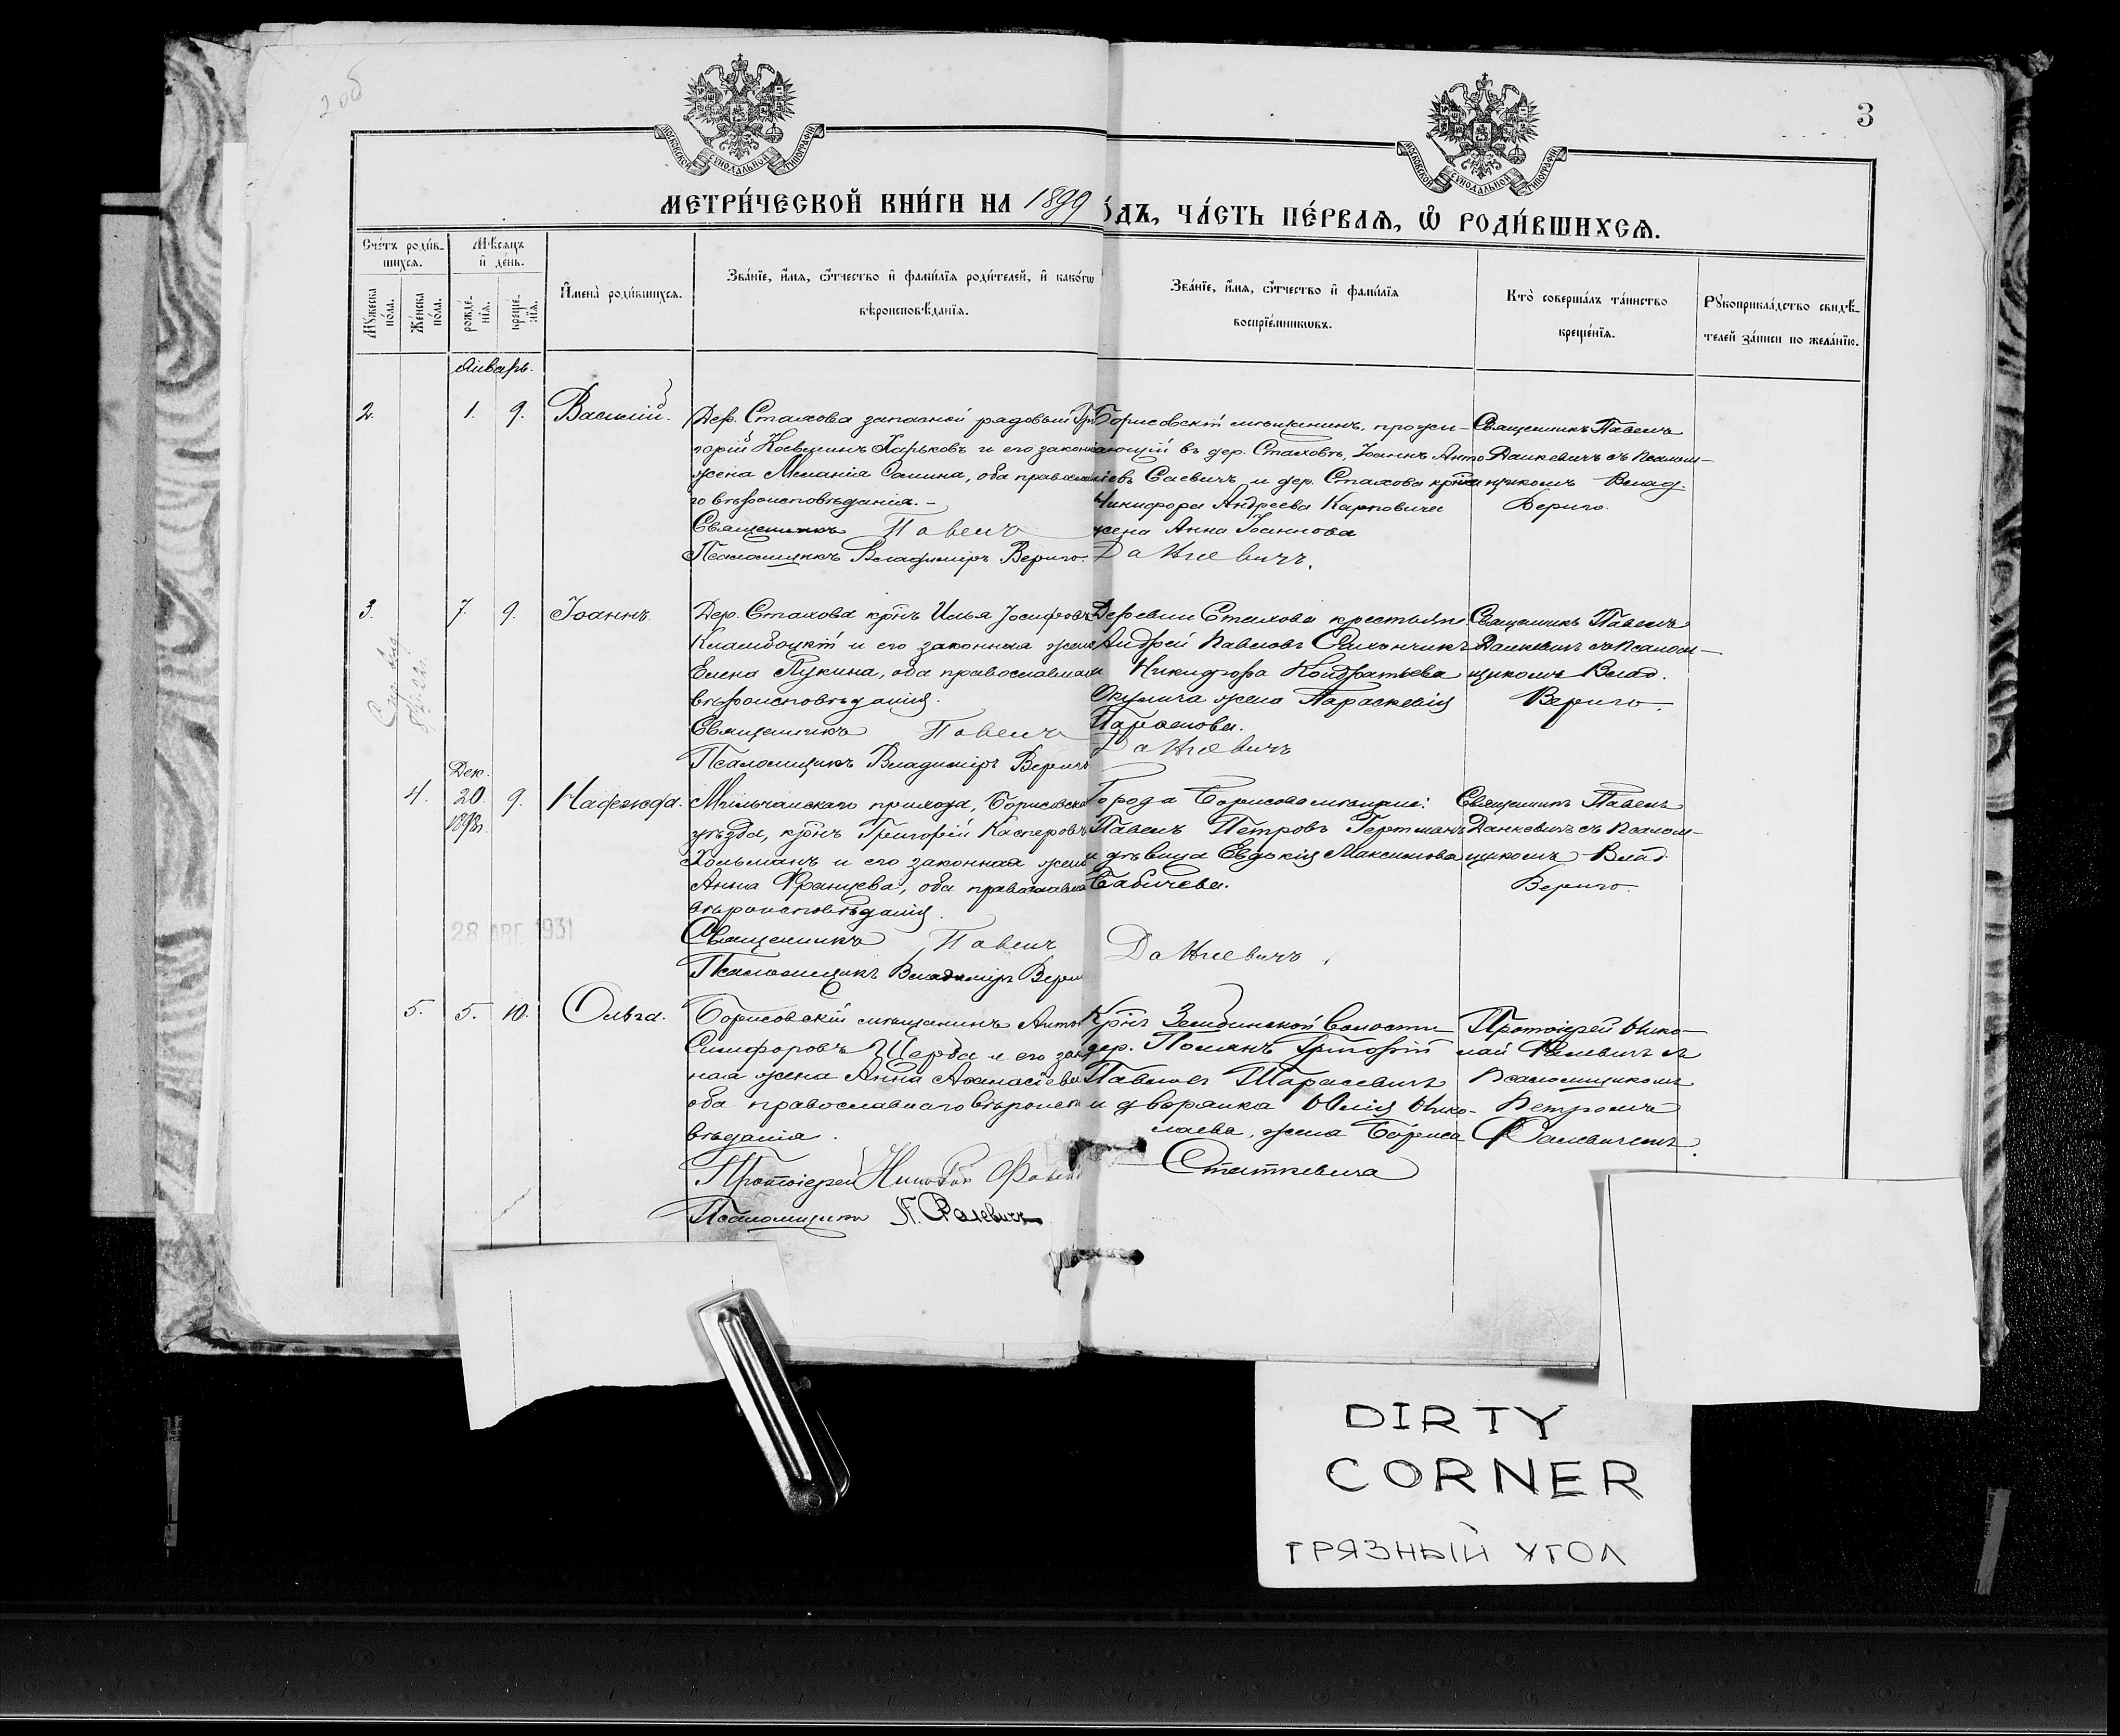 2 об
3
МОСКОВСКОЙ СУНОДАЛЬНОЙ ТИПОГРАФІИ
МОСКОВСКОЙ СУНОДАЛЬНОЙ ТИПОГРАФІИ
МЕТРИ́ЧЕСКОЙ КНИ́ГИ НА 1899
О́ДЪ, ЧА́СТЬ ПЕ́РВАѦ, Ѡ҆ РОДИ́ВШИХСѦ.
Сче́тъ роди́в-
шихсѧ.
Мѣ́сѧцъ
и҆ де́нь.
Мꙋ́жеска
по́ла.
Же́нска
по́ла.
рожде́-
нїѧ.
креще́-
нїѧ.
И҆мена̀ роди́вшихсѧ.
Зва́нїе, и҆́мѧ, ѻ҆́тчество и҆ фамѝлїѧ роди́телей, и҆ како́гѡ
вѣроисповѣ́данїѧ.
Зва́нїе, и҆́мѧ, ѻ҆́тчество и҆ фамѝлїѧ
воспрїе́мникѡвъ.
Кто̀ соверша́лъ та́инство
креще́нїѧ.
Рꙋкоприкла́дство свидѣ́-
телей за́писи по жела́нїю.
Январь.
2.
1.
9.
Василій.
Дер. Стахова запасной рядовый Гри
горій Харьковъ и его законная
жена Меланія оба православна
го вѣроисповѣданія.-
Священникъ Павелъ
Псаломщикъ Владиміръ Вериго.
Борисовскій мѣщанинъ, прожи-
вающій въ дер. Стаховѣ, Іоаннъ Анто
ніевъ Саевичъ и дер. Стахова крнна
Никифора Андреева Карповича
жена Анна Іоаннова
Данкевичъ.
Священникъ Павелъ
Данкевичъ съ псалом-
щикомъ Влад.
Вериго.
3.
7.
9.
Іоаннъ.
Дер. Стахова крнъ Илья Іосифовъ
и его законная жена
Елена Лукина, оба православнаго
вѣроисповѣданія.
Священникъ Павелъ
Псаломщикъ Владиміръ Вериго
Деревни Стахова крестьяне
Андрей Павловъ
и Никифора Кондратьева
Окулича жена Параскевія
Данкевичъ
Священникъ Павелъ
Данкевичъ съ псалом-
щикомъ Влад.
Вериго.
4.
Дек.
20.
1898г.
9.
Надежда.
прихода, Борисовскаго
уѣзда, крнъ Григорій Касперовъ
Хольманъ и его законная жена
Анна Францева, оба православнаго
вѣроисповѣданія.
Священникъ Павелъ
Псаломщикъ Владиміръ Вериго
Города Борисова мѣщане:
Павелъ Петровъ Гертманъ
и дѣвица Евдокія Максимова
Бабичева.
Данкевичъ.
Священникъ Павелъ
Данкевичъ съ псалом-
щикомъ Влад.
Вериго.
28 АВГ 1931
5.
5.
10.
Ольга.
Борисовскій мѣщанинъ Антон
Щерба и его закон
ная жена Анна Аѳанасіева
оба православнаго вѣроиспо
вѣданія.
Протоіерей Николай Фалевичъ
Псаломщикъ П. Фалевичъ
Крнъ Зембинской волости
дер. Григорій
Павловъ Тарасевичъ
и дворянка Юлія Нико-
лаева, жена Бориса
Статкевича
Протоіерей Нико-
лай Фалевичъ съ
псаломщикомъ
Петромъ
Фалевичемъ.
DIRTY
CORNER
ГРЯЗНЫЙ УГОЛ